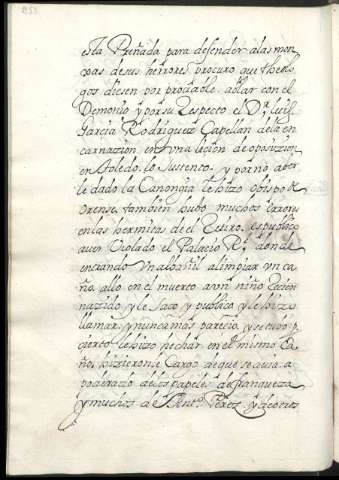 esta Preñada para defender a las mon
xas de sus herrores procuro que theolo
gos diesen por prouable. adlar con el
Demonio y por su Respecto el Dr. Luis
Garcia Rodriguez Capellan de la en
carnazion en vna licion de oposizion
en Toledo lo sustento y por no aber
le dado la Canongia le hizo obispo de
Orense. tambien hubo muchos errores
en las hermitas de el Retiro, es publico
auer Violado el Palacio Rl. donde
entrando Un albañil a limpiar vn ca
ño, allo en el muerto a vn niño Recien
nazido y le saco y publico y le hizo
llamar, y nunca mas parecio, y se tubo p.
cierto le hizo hechar en el mismo Ca
ño, hizieronle Cargo de que se auia a
poderado de los papeles de franqueza
y muchos de Dn. Pérez y de otros